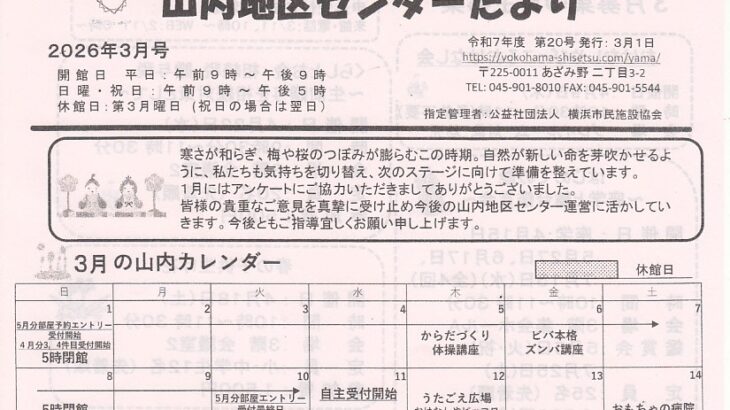 山内地区センターだより
2026年3月号
開館日 平日:午前9時~午後9時
日曜・祝日:午前9時~午後5時
休館日:第3月曜日(祝日の場合は翌日)
令和7年度 第20号 発行:3月1日
https://yokohama-shisetsu.com/yama/
〒225-0011 あざみ野 二丁目3-2
TEL:045-901-8010 FAX:045-901-5544
指定管理者:公益社団法人 横浜市民施設協会
寒さが和らぎ、梅や桜のつぼみが膨らむこの時期。自然が新しい命を芽吹かせるよ
うに、私たちも気持ちを切り替え、次のステージに向けて準備を整えています。
1月にはアンケートにご協力いただきましてありがとうございました。
皆様の貴重なご意見を真摯に受け止め今後の山内地区センター運営に活かしてい
きます。今後ともご指導宜しくお願い申し上げます。
3月の山内カレンダー
休館日
日 月 火 水 木 金 土
1 2 3 4 5 6 7
5月分部屋予約エントリー
受付開始
4月分3、4件目受付開始
5時閉館
からだづくり
体操講座
ビバ本格
ズンバ講座
8 9 10 11 12 13 14
5時閉館
5月分部屋エントリー
受付最終日
自主受付開始
うたごえ広場
おもちゃの病院